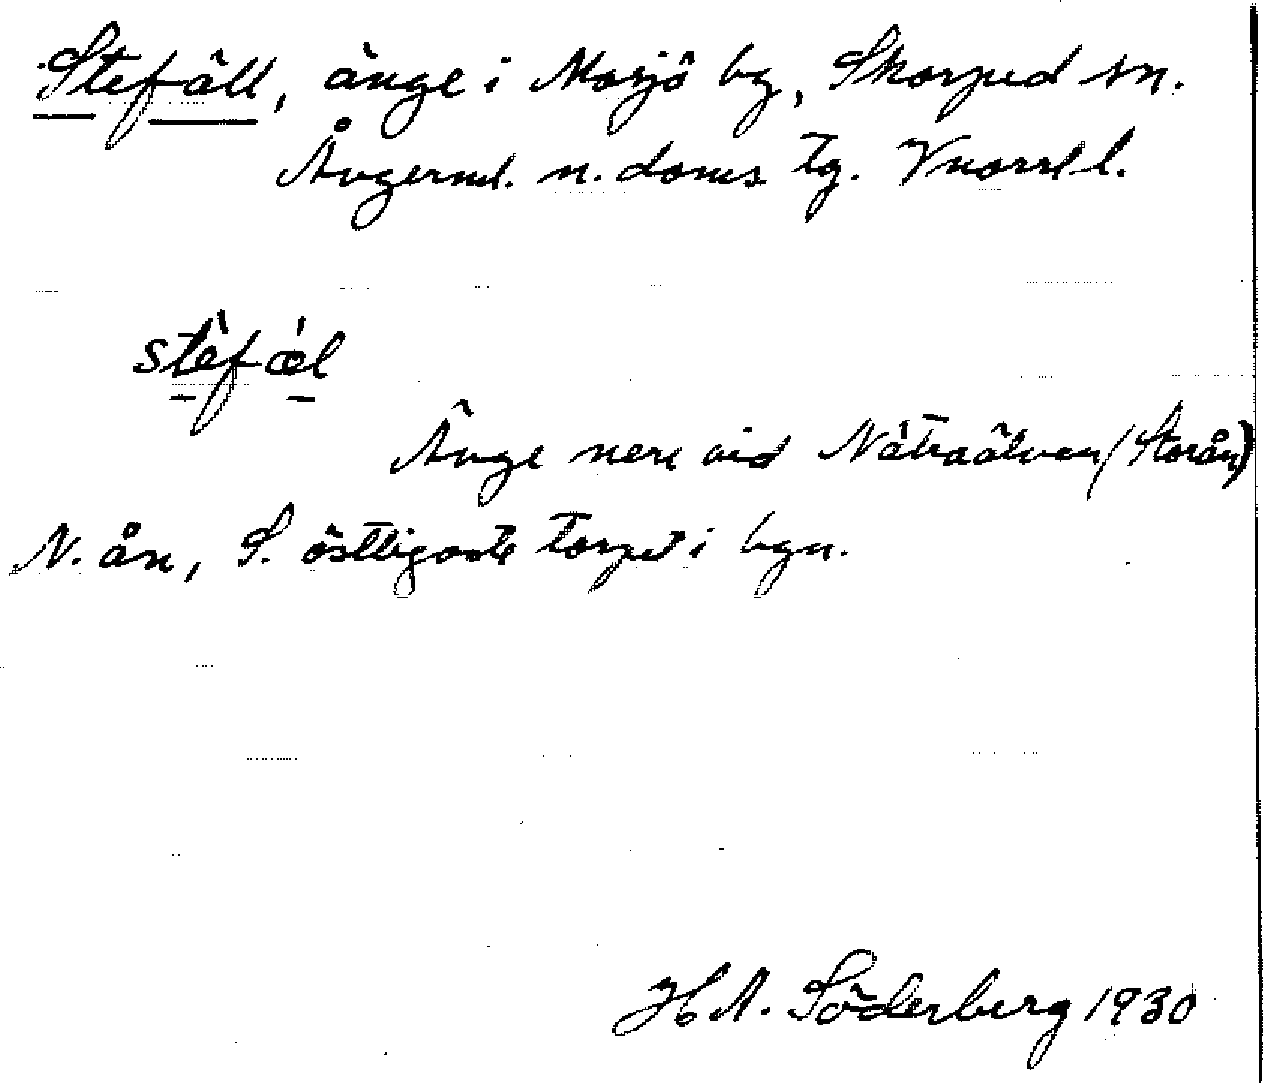 Stefäll, änge i Mosjö by, Skorped sn.
Ångerml. n. doms tg. Vnorrl l.
stèfǽl
Änge nere vid Nätraälven (Storån)
N. ån, S. östligaste torpet i byn.
H A. Söderberg 1930